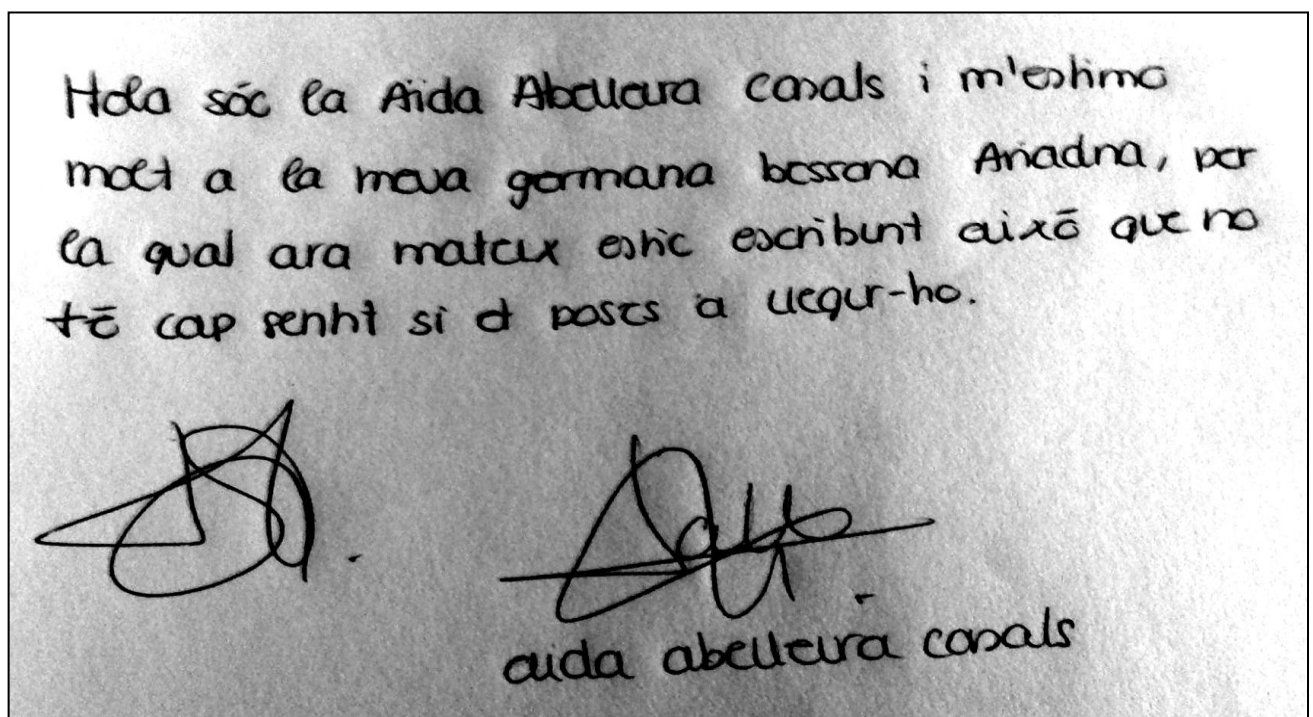 Hola sóc la Aïda Abelleira casals i m'estimo
molt a la meva germana bessona Ariadna, per
la qual ara mateix estic escribint aixó que no
té cap sentit si et poses a llegir-ho.
aida abelleira casals